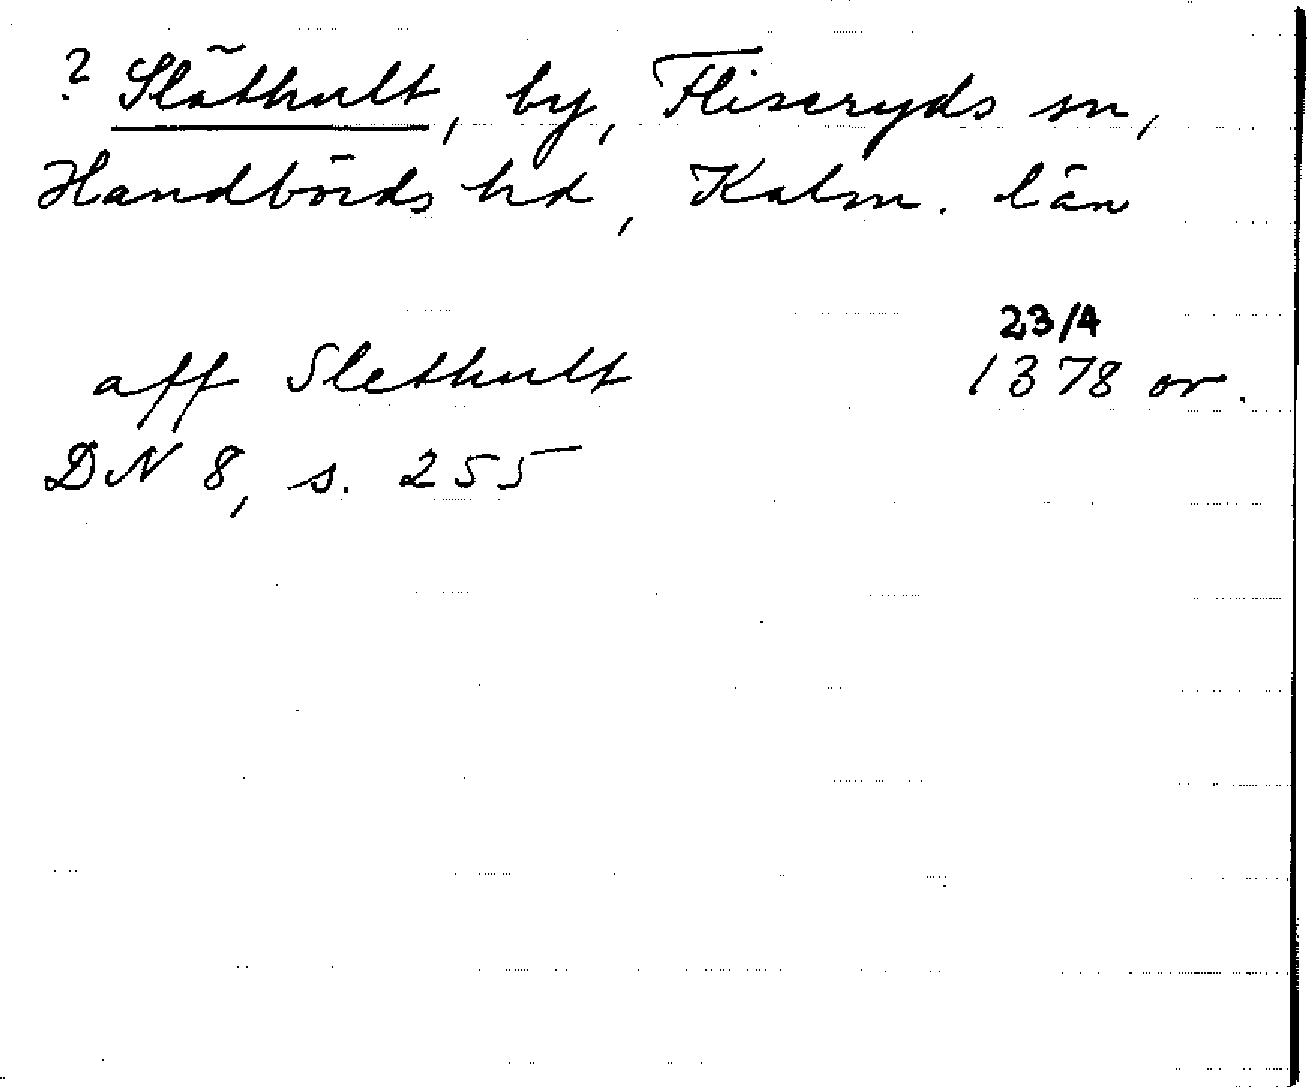 ? Släthult, by, Fliseryds sn,
Handbörds hd, Kalm. län
23/4
aff Slethult 1378 or.
DN 8, s. 255